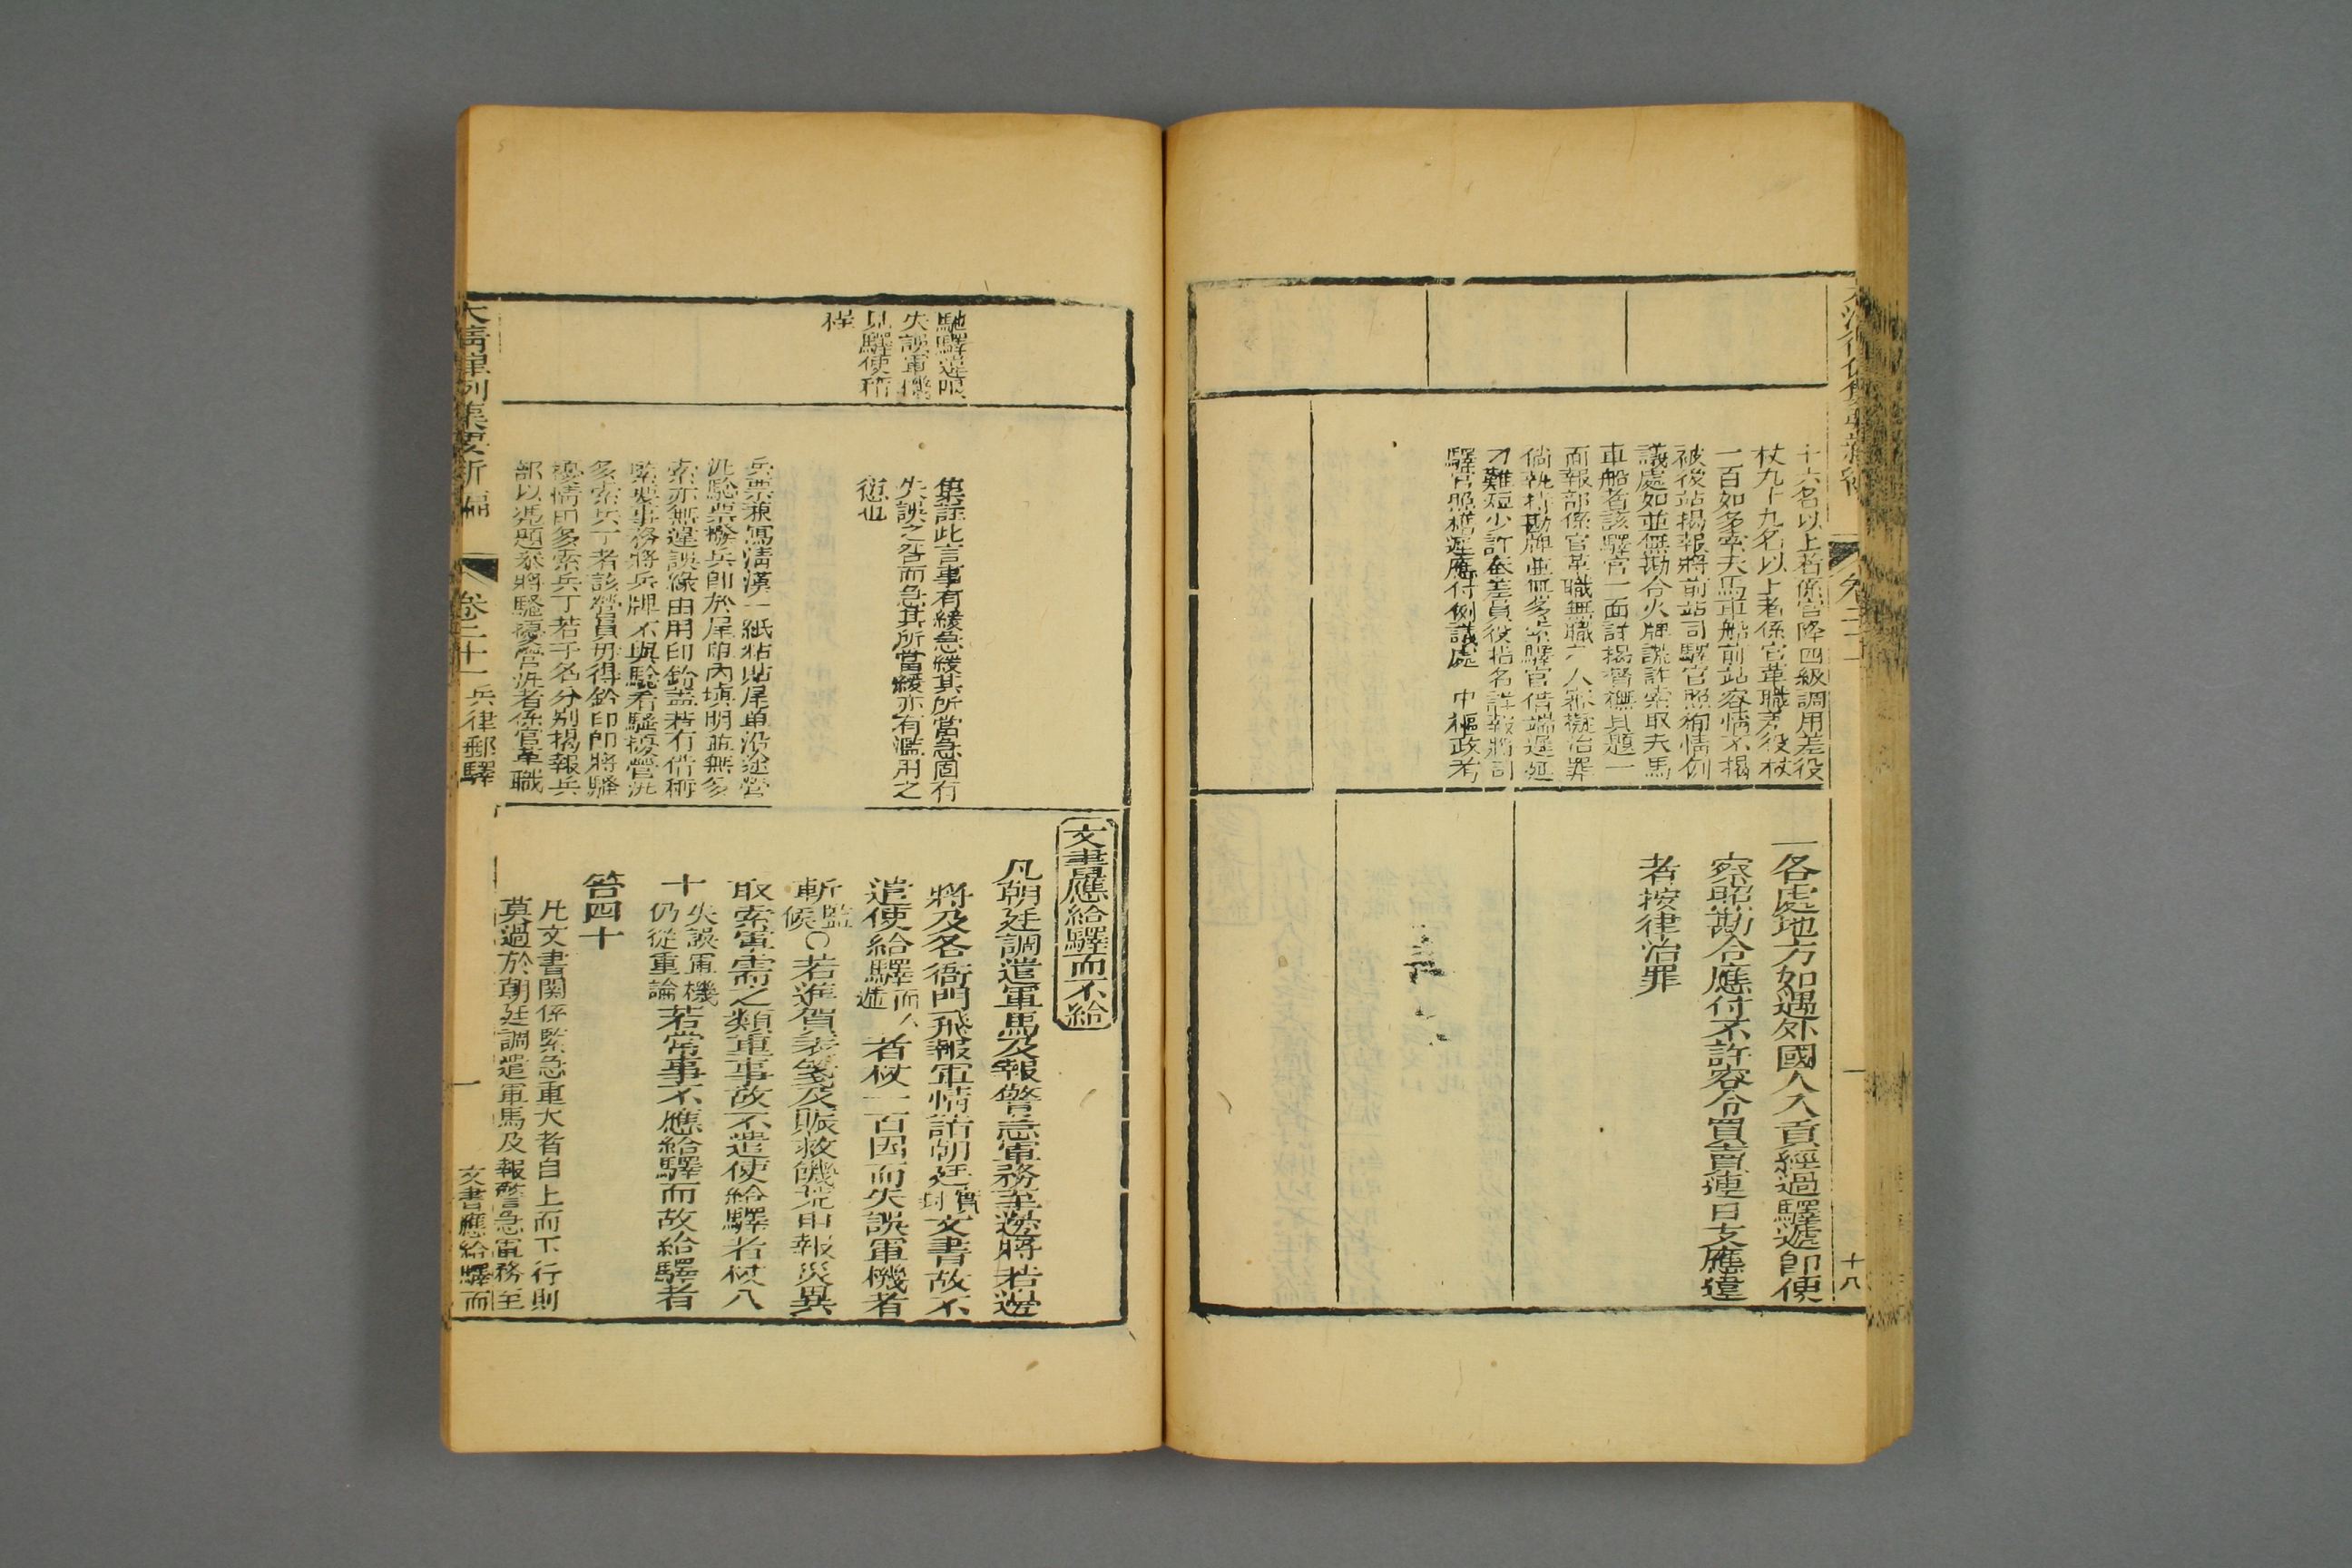 十六名以上者係官降四級調用差役
杖九十九名以上者係官革職差役杖
一百如多索夫馬車船前站容情不揭
被後站揭報將前站司驛官照徇情例
議處如並無勘合火牌謊詐索取夫馬
車船者該驛官一面詳揭督撫具題一
面報部係官革職無職之人眾擬治罪
倘執持勘牌並無多索驛官借端遲延
刁難短少許奉差員役指名詳報將司
驛官照樣遲應付例議處 中樞政考
一各處地方如遇外國人入貢經過驛遞即便
察照勘合應付不許容令買賣連日支應違
者按律治罪
十八
馳驛違限
失誤軍機
見驛使稽
程
集註此言事有緩急緩其所當急固有
失誤之咎而急其所當緩亦有濫用之
愆也
兵票兼寫清漢一紙粘貼尾單沿途營
汛驗票撥兵即於尾單內填明並無多
索亦無遲誤緣由用印鈐蓋若有借稱
緊要事務將兵牌不與驗看騷擾營汛
多索兵丁者該營員毋得鈐印即將騷
擾情由多索兵丁若干名分別揭報兵
部以憑題參將騷擾營汛者係官革職
文書應給驛而不給
凡朝廷調遣軍馬及報警急軍務至邊將若邊
將及各衙門飛報軍情詣朝廷實封文書故不
遣使給驛而入遞者杖一百因而失誤軍機者
斬監候○若進賀表箋及賑救饑荒申報災異
取索軍需之類重事故不遣使給驛者杖八
十失誤軍機仍從重論若常事不應給驛而故給驛者
笞四十
凡文書關係緊急重大者自上而下行則
莫過於朝廷調遣軍馬及報警急軍務至
大清律例集要新編
卷二十一
兵律郵驛
一
文書應給驛而